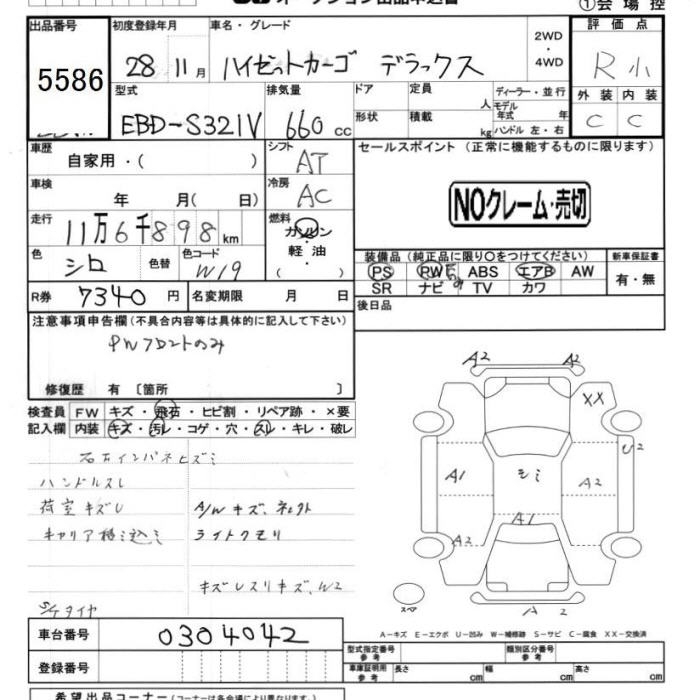 オークション出品申込書
①会場控
出品番号 初度登録年月 車名・グレード 2WD・4WD 評価点
5586 28年 11月 ハイゼットカーゴ デラックス R小
型式 排気量 ドア 定員 人 ディーラー・並行 外装 内装
EBD-S321V 660cc 形状 積載 kg モデル年式 年 ハンドル 左・右 C C
車歴 自家用・( ) シフト AT セールスポイント (正常に機能するものに限ります)
車検 年 月( 日) 冷房 AC
NOクレーム・売切
走行 11万6千898km 燃料 ガソリン・軽油
色 シロ 色替 色コード W19
装備品 (純正品に限り○をつけてください) 新車保証書
PS PW ABS エアB AW 有・無
SR ナビ TV カワ
R券 7340円 名変期限 月 日
後日品
注意事項申告欄(不具合内容等は具体的に記入して下さい)
PWフロントのみ
修復歴 有 〔箇所 〕
検査員記入欄 FW キズ・飛石・ヒビ割・リペア跡・×要
内装 キズ・汚レ・コゲ・穴・スレ・キレ・破レ
右インパネヒズミ
ハンドルスレ
荷室キズU A/Wキズ、
キャリア積ミ込ミ ライトクモリ
キズ W2
S/Tタイヤ
A2 A2
XX
U2
A1 A2
A1
A2
A 2
スペア
A-キズ E-エクボ U-凹み W-補修跡 S-サビ C-腐食 XX-交換済
車台番号 0304042
登録番号
型式指定番号 参考 類別区分番号 参考
車庫証明用 参考 長さ cm 幅 cm 高さ cm
希望出品コーナー(コーナーは各会場により異なります)